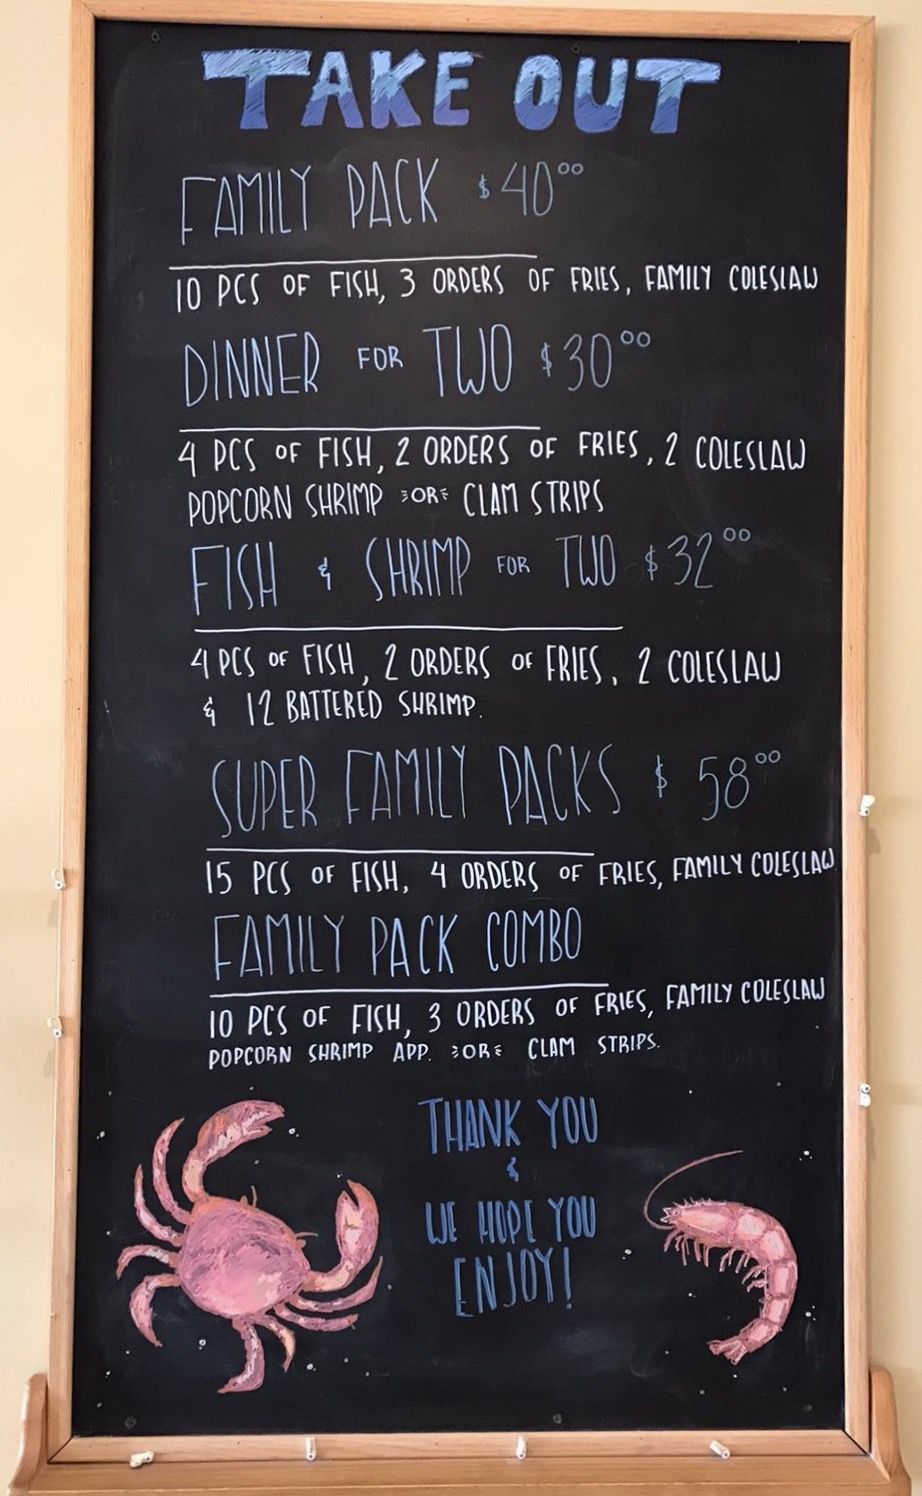 TAKE OUT
FAMILY PACK $40⁰⁰
10 PCS OF FISH, 3 ORDERS OF FRIES, FAMILY COLESLAW
DINNER FOR TWO $30⁰⁰
4 PCS OF FISH, 2 ORDERS OF FRIES, 2 COLESLAW
POPCORN SHRIMP OR CLAM STRIPS
FISH & SHRIMP FOR TWO $32⁰⁰
4 PCS OF FISH, 2 ORDERS OF FRIES, 2 COLESLAW
& 12 BATTERED SHRIMP.
SUPER FAMILY PACKS $58⁰⁰
15 PCS OF FISH, 4 ORDERS OF FRIES, FAMILY COLESLAW
FAMILY PACK COMBO
10 PCS OF FISH, 3 ORDERS OF FRIES, FAMILY COLESLAW
POPCORN SHRIMP APP. OR CLAM STRIPS.
THANK YOU
&
WE HOPE YOU
ENJOY!